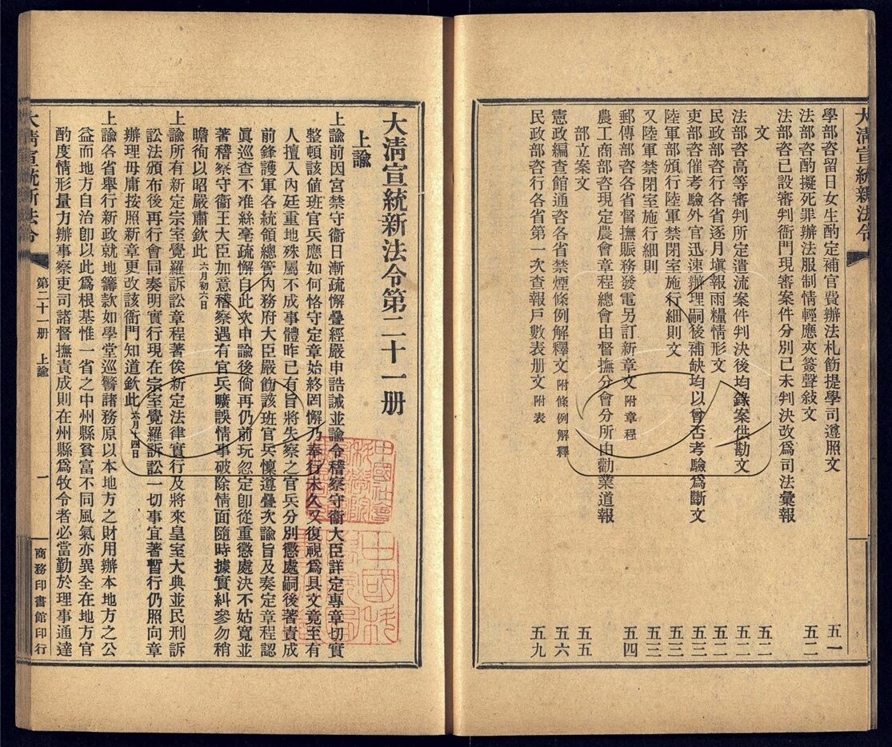 大清宣統新法令
學部咨留日女生酌定補官費辦法札飭提學司遵照文 五一
法部咨酌擬死罪辦法服制情輕應夾簽聲敍文 五二
法部咨已設審判衙門現審案件分別已未判決改爲司法彙報
文 五二
法部咨高等審判所定遣流案件判決後均錄案供勘文 五二
民政部咨行各省逐月塡報雨糧情形文 五三
吏部咨催考驗外官迅速辦理嗣後補缺均以曾否考驗爲斷文 五三
陸軍部頒行陸軍禁閉室施行細則文 五三
又陸軍禁閉室施行細則 五三
郵傳部咨各省督撫賑務發電另訂新章文 附章程 五四
農工商部咨現定農會章程總會由督撫分會分所由勸業道報
部立案文 五五
憲政編查館通咨各省禁煙條例解釋文 附條例解釋 五六
民政部咨行各省第一次查報戶數表册文 附表 五九
大清宣統新法令第二十一册
上諭
上諭前因宮禁守衞日漸疏懈疊經嚴申誥誡並諭令稽察守衞大臣詳定專章切實
整頓該値班官兵應如何恪守定章始終罔懈乃奉行未久又復視爲具文竟至有
人擅入內廷重地殊屬不成事體昨已有旨將失察之官兵分別懲處嗣後著責成
前鋒護軍各統領總管內務府大臣嚴飭該班官兵懍遵疊次諭旨及奏定章程認
眞巡查不准絲毫疏懈自此次申諭後倘再仍前玩忽定卽從重懲處決不姑寬並
著稽察守衞王大臣加意稽察遇有官兵曠誤情事破除情面隨時據實糾參勿稍
瞻徇以昭嚴肅欽此 六月初六日
上諭所有新定宗室覺羅訴訟章程著俟新定法律實行及將來皇室大典並民刑訴
訟法頒布後再行會同奏明實行現在宗室覺羅訴訟一切事宜著暫行仍照向章
辦理毋庸按照新章更改該衙門知道欽此 六月十四日
上諭各省舉行新政就地籌款如學堂巡警諸務原以本地方之財用辦本地方之公
益而地方自治卽以此爲根基惟一省之中州縣貧富不同風氣亦異全在地方官
酌度情形量力辦事察吏司諸督撫責成則在州縣爲牧令者必當勤於理事通達
大清宣統新法令 第二十一册 上諭 一 商務印書館印行